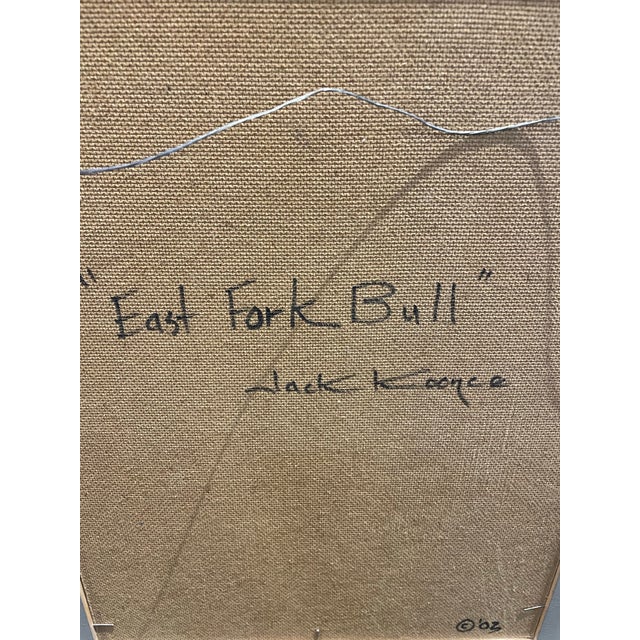 "East Fork Bull"
Jack Koonce
© '02